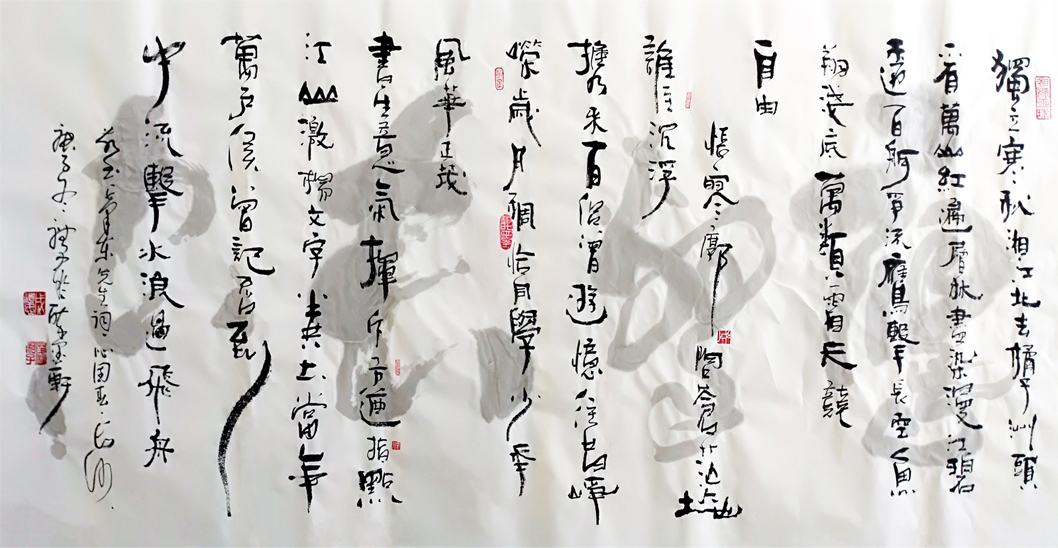 獨立寒秋湘江北去橘子洲頭
看萬山紅遍層林盡染漫江碧
透百舸爭流鷹擊長空魚
翔淺底萬類霜天競
自由
悵寥廓問蒼茫大地
誰主沉浮
攜來百侶曾遊憶往昔崢
嶸歲月稠恰同學少年
風華正茂
書生意氣揮斥方遒指點
江山激揚文字糞土當年
萬戶侯曾記否到
中流擊水浪遏飛舟
毛澤东先生詞沁園春長沙
庚子冬